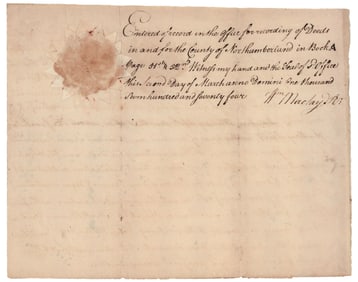 Entered of record in the Office for recording of Deeds
in and for the County of Northumberland in Book A
Page 51st & 52nd. Witness my hand and the Seal of Sd Office
this Second Day of March anno Domini One thousand
Seven hundred and seventy four
Wm Maclay